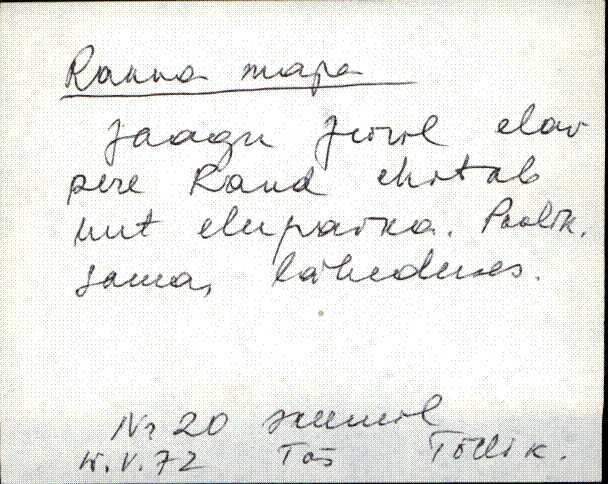 Ranna maja
Jaagu juurel elav
pere Rand ehitab
uut elupaika. Poolik.
sama, lähedases.
Nr 20
V. 72 Tõs Tõlli k.